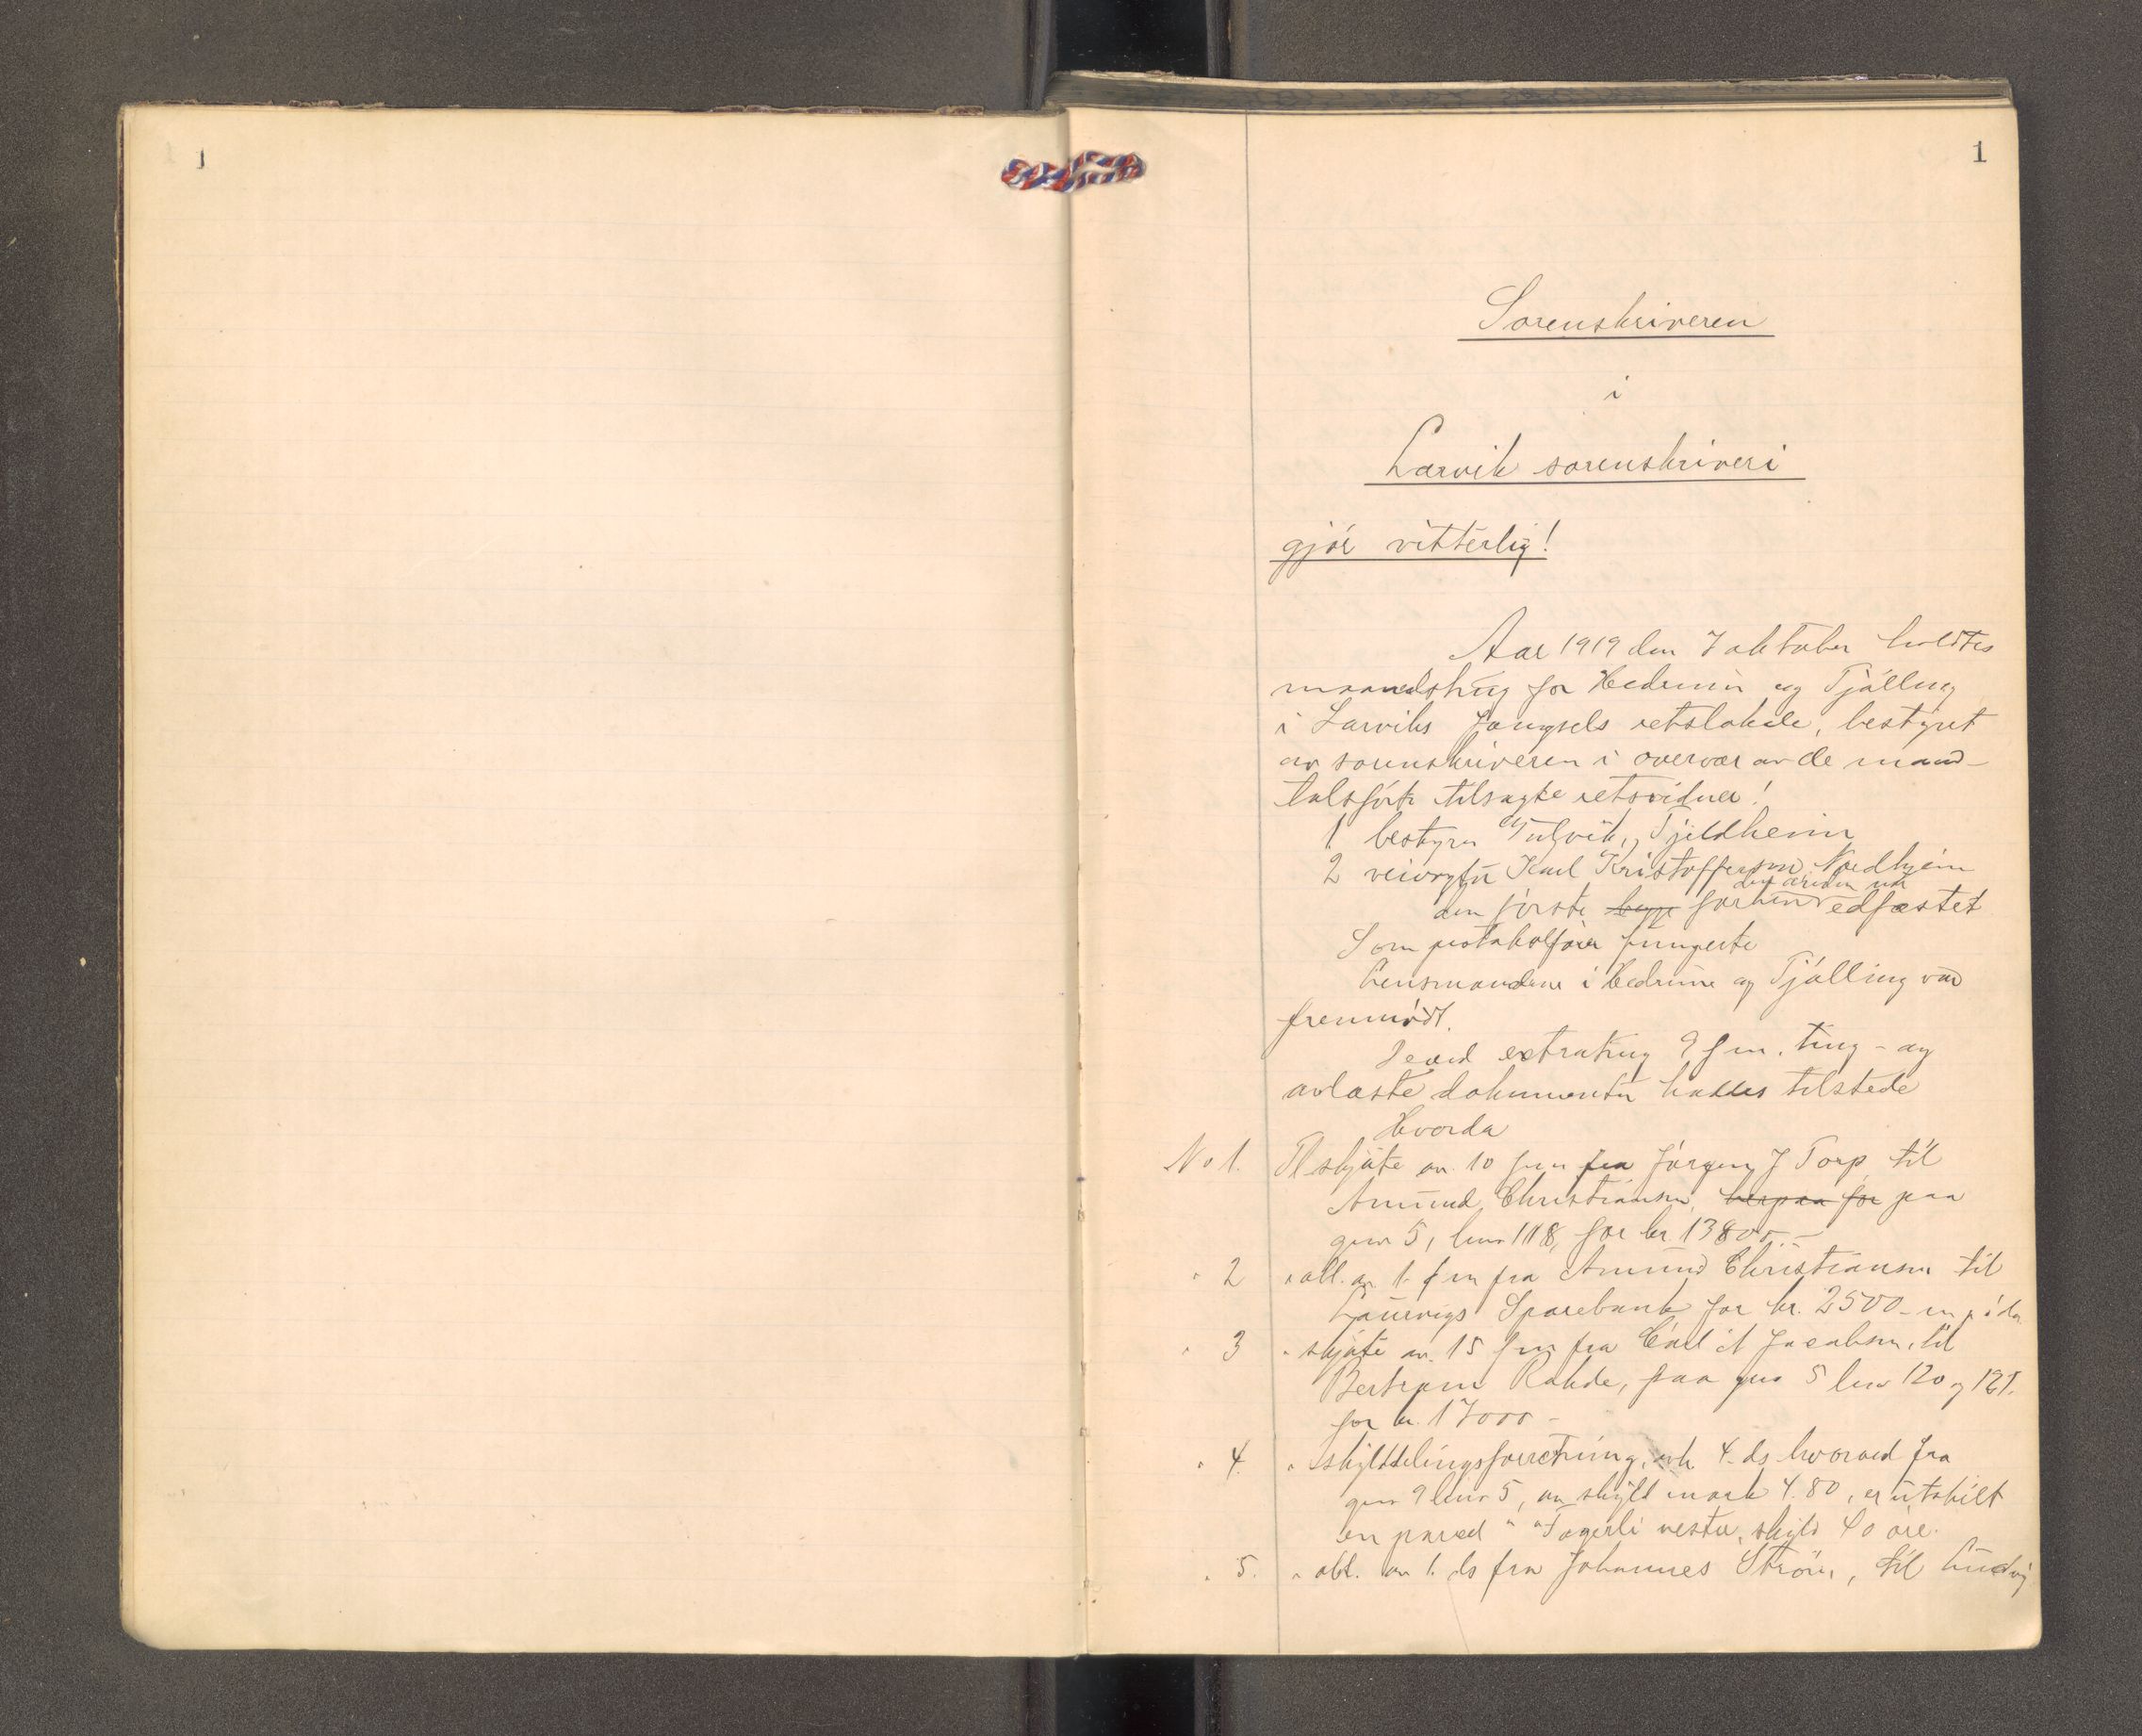 1
1
Sorenskriveren
i
Larvik sorenskriveri
gjør vitterlig!
Aar 1919 den 7 oktober holdtes
maanedsting for Hedrum og Tjölling
i Larviks fængsels retslokale, bestyret
av sorenskriveren i overvær av de mand-
talsførte tilsagte retsvidner!
1 bestyrer Tjeldheim
2 veivogter Karl Kristoffersen, Nordhjem
den første begge forhen edfæstet
Som protokolfører fungerte
Lensmændene i Hedrum og Tjølling var
fremmødt.
extrating 9 f m. ting- og
avlæste dokumenter hadtes tilstede
Hvorda
No 1. Tl skjøte av 10 f m fra Jørgen J Torp til
Amund Christiansen, paa
gnr 5, bnr 118, for kr 13800.-
" 2 " obl. av 1. f m fra Amund Christiansen til
Laurvigs Sparebank for kr. 2500 - m p i do
" 3 " skjøte av 15 f m fra Carl A Jacobsen, til
Bertram Rohde, paa gnr 5 bnr 120 og 121.
for kr. 17000 -
" 4. " skylddelingsforretning, avh 4. ds hvorved fra
gnr 9 bnr 5, av skyld mark 4.80, er utskilt
en parcel " "Fagerli vestre, skyld 40 øre.
" 5. " obl. av 1. ds fra Johannes Strøm, til Ludvig